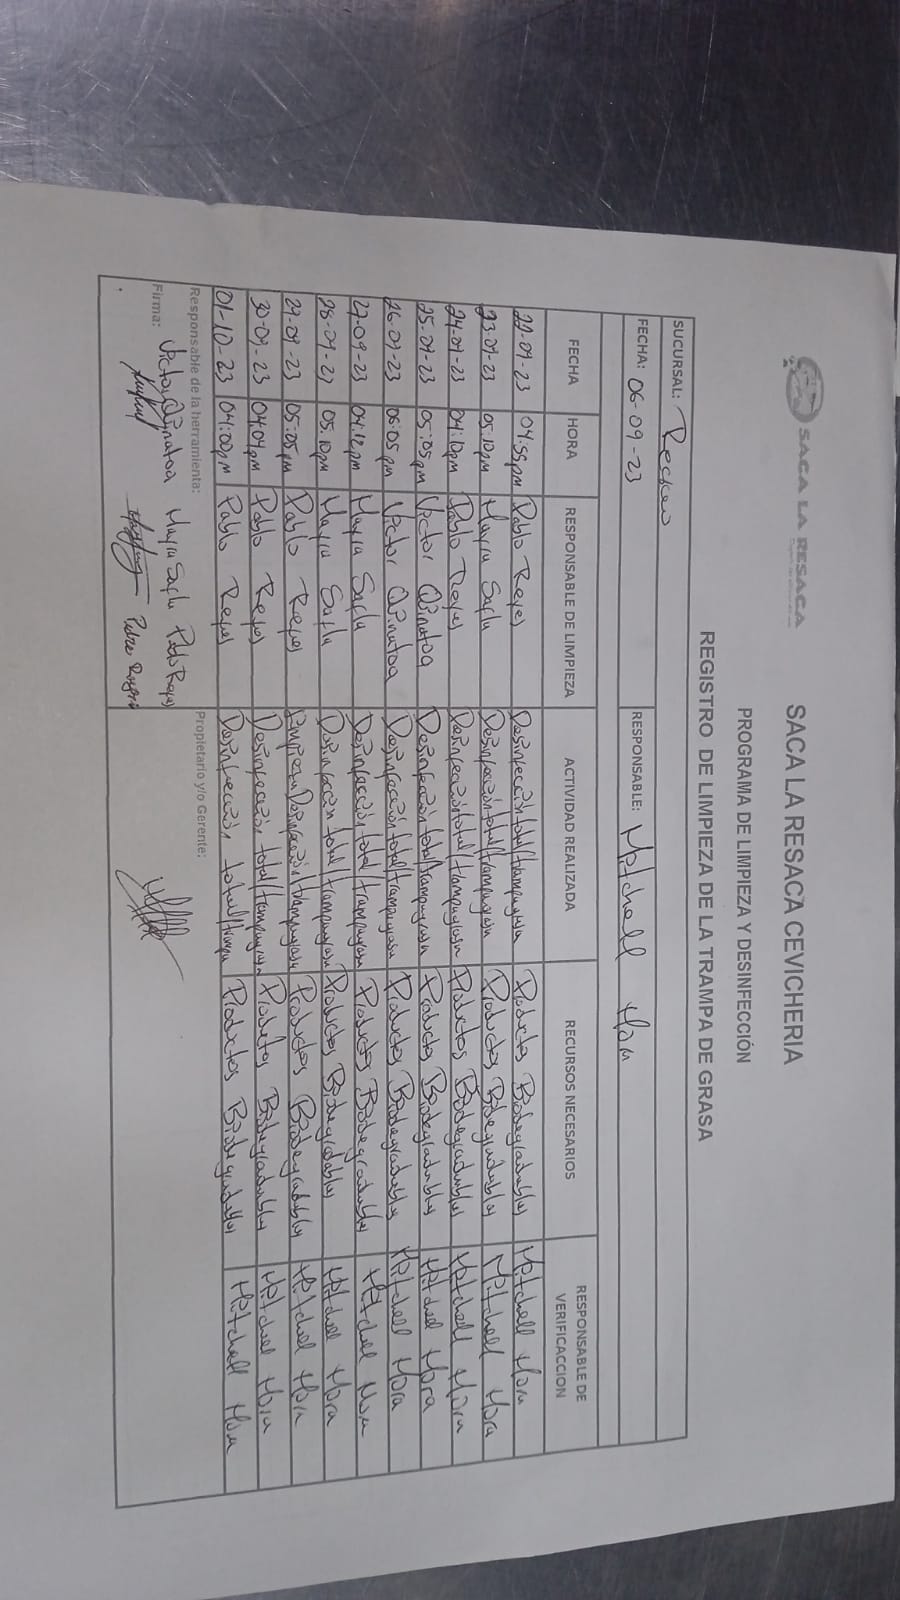 SACA LA RESACA
SACA LA RESACA CEVICHERIA
PROGRAMA DE LIMPIEZA Y DESINFECCIÓN
REGISTRO DE LIMPIEZA DE LA TRAMPA DE GRASA
SUCURSAL:
FECHA: 06-09-23 RESPONSABLE: Mitchell Mora
FECHA HORA RESPONSABLE DE LIMPIEZA ACTIVIDAD REALIZADA RECURSOS NECESARIOS RESPONSABLE DE VERIFICACCION
22-09-23 04:55pm Pablo Reyes Desinfección total/trampagrasa Productos Biodegradables Mitchell Mora
23-09-23 05:10pm Mayra Desinfección total/trampagrasa Productos Biodegradables Mitchell Mora
24-09-23 04:10pm Pablo Reyes Desinfección total/trampagrasa Productos Biodegradables Mitchell Mora
25-09-23 05:05pm Victor Quinatoa Desinfección total/trampagrasa Productos Biodegradables Mitchell Mora
26-09-23 06:05pm Victor Quinatoa Desinfección total/trampagrasa Productos Biodegradables Mitchell Mora
27-09-23 04:12pm Mayra Desinfección total/trampagrasa Productos Biodegradables Mitchell Mora
28-09-23 05:10pm Mayra Desinfección total/trampagrasa Productos Biodegradables Mitchell Mora
29-09-23 05:05pm Pablo Reyes Productos Biodegradables Mitchell Mora
30-09-23 04:04pm Pablo Reyes Desinfección total/trampagrasa Productos Biodegradables Mitchell Mora
01-10-23 04:00pm Pablo Reyes Desinfección total/trampa Productos Biodegradables Mitchell Mora
Responsable de la herramienta: Propietario y/o Gerente:
Victor Quinatoa Mayra Pablo Reyes
Firma: